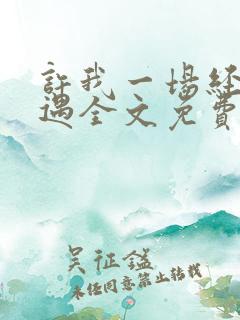 許我一場经
遇全文免費
吴征鎰
未经同意禁止转载